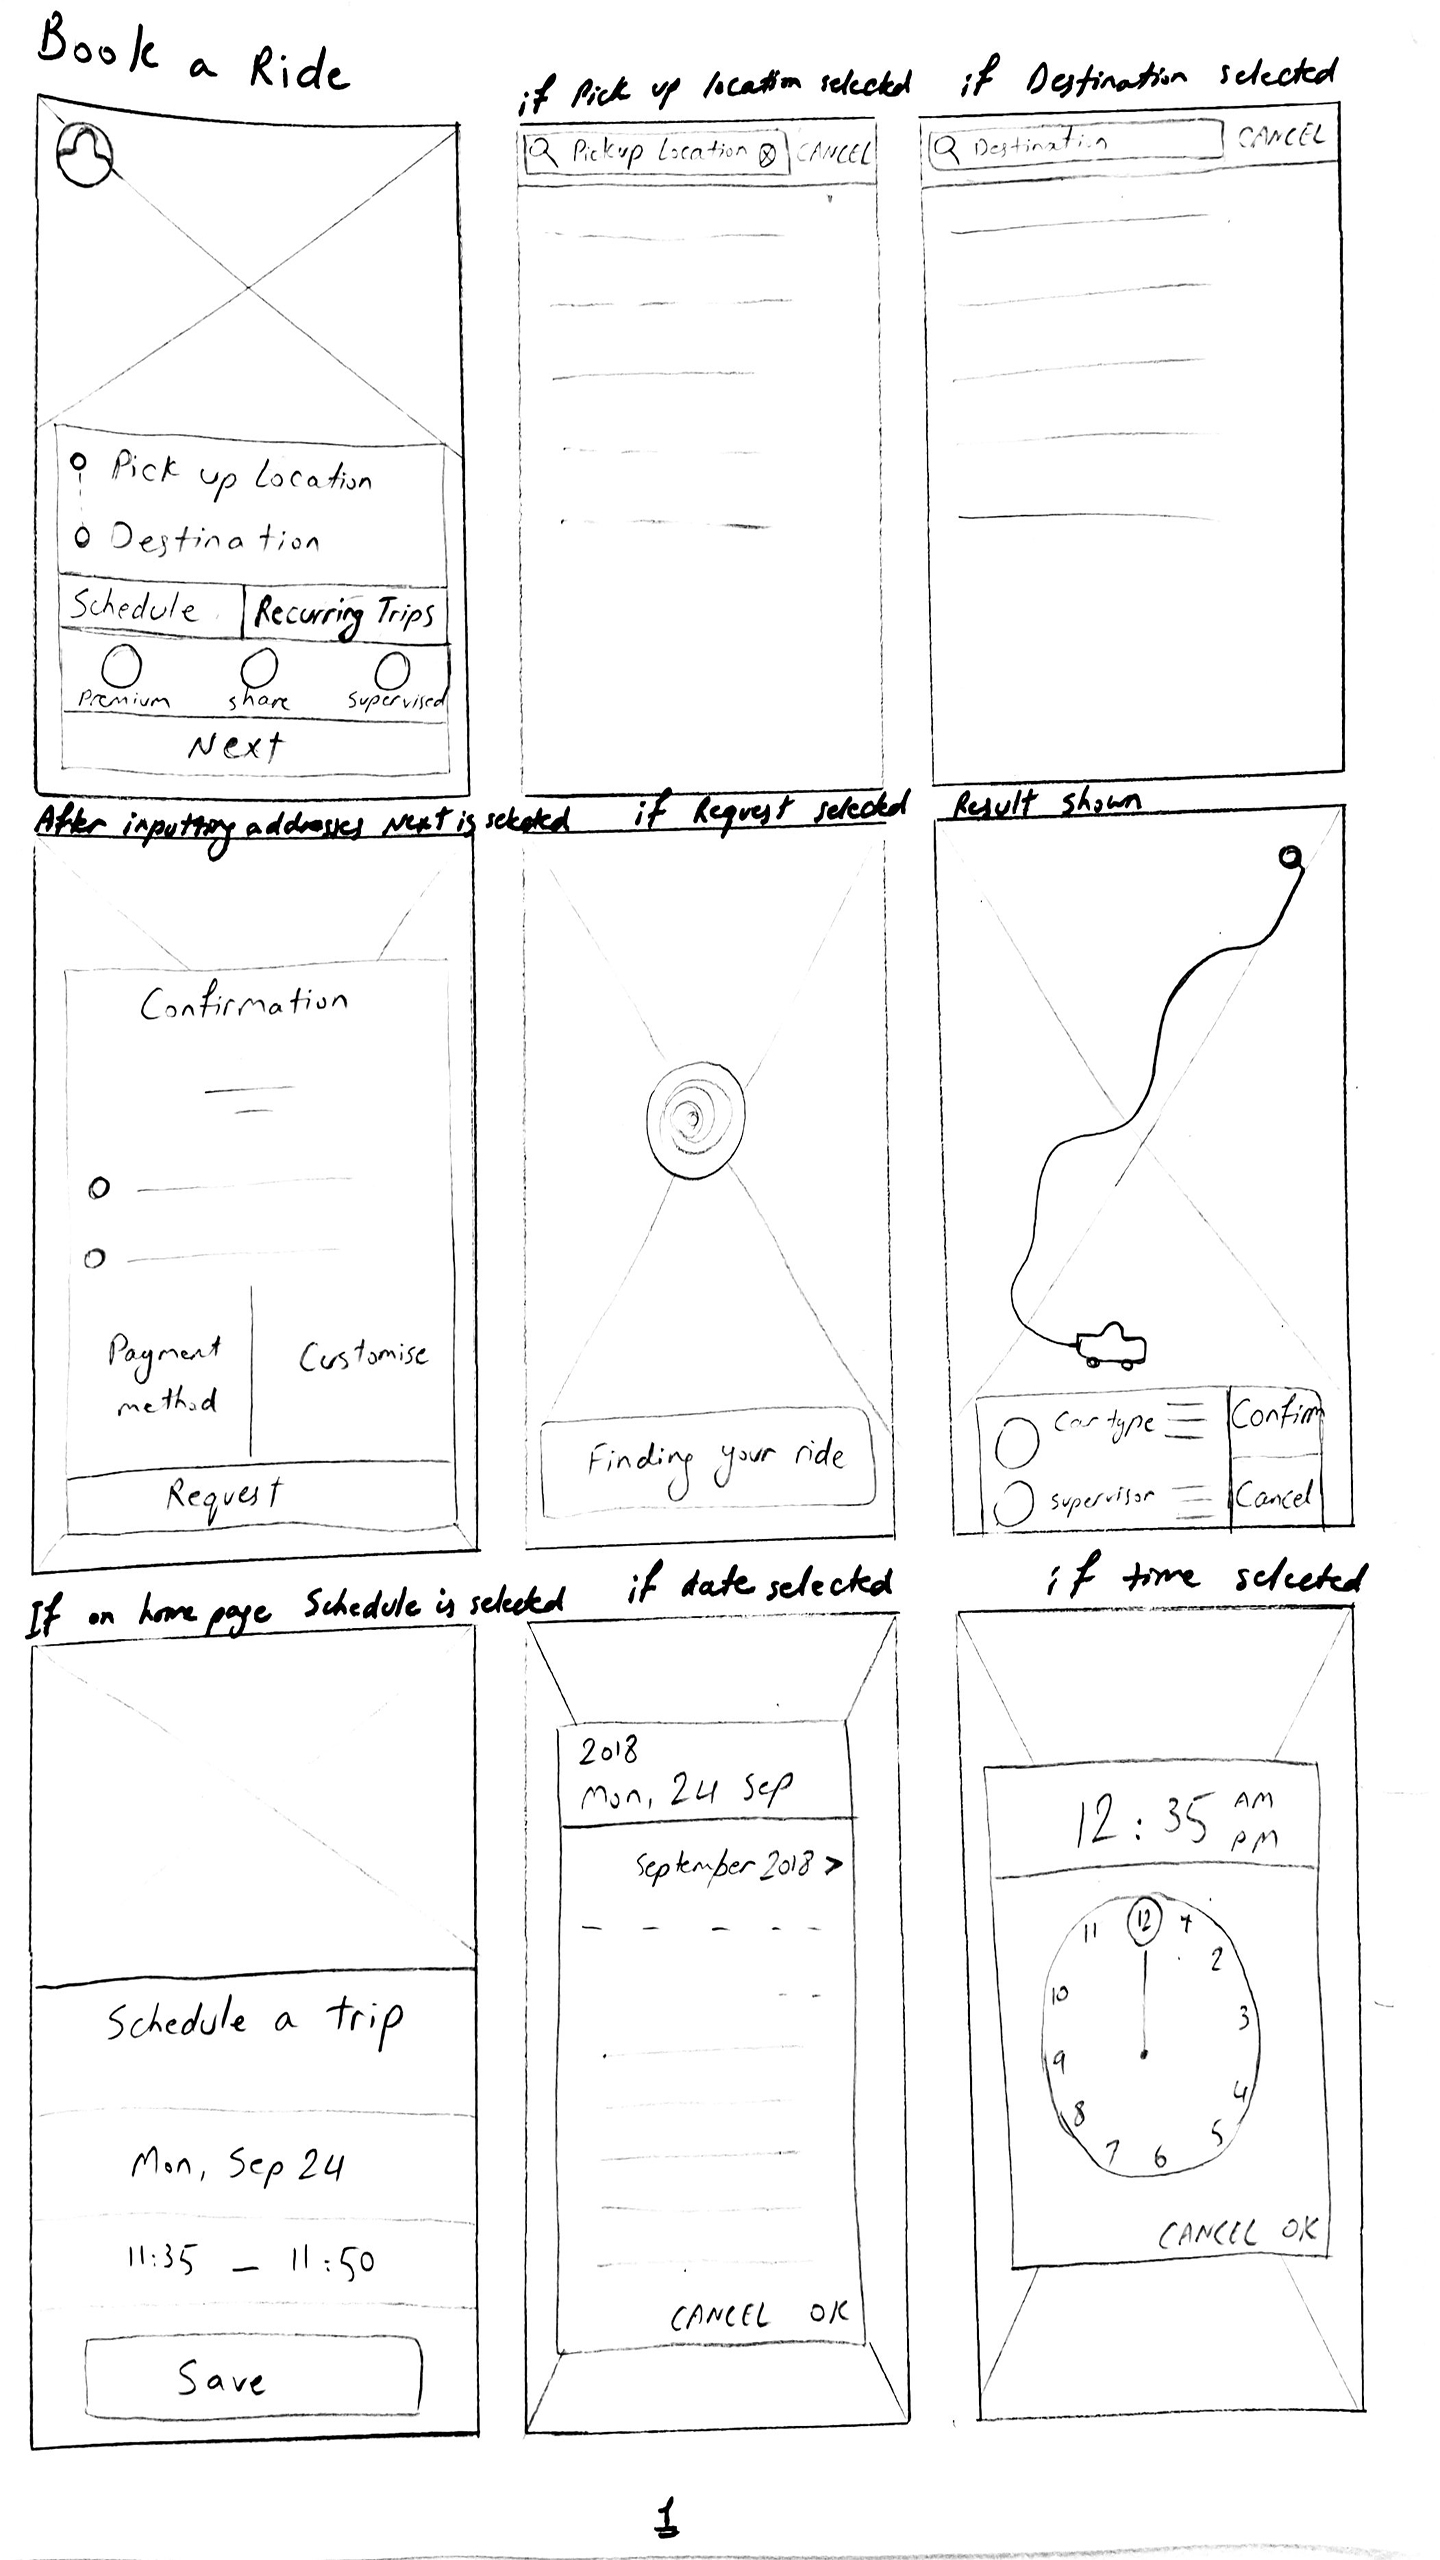 Book a Ride
Pick up Location
Destination
Schedule
Recurring Trips
Premium
share
supervised
Next
if Pick up location selected
Pickup Location
CANCEL
if Destination selected
Destination
CANCEL
After inputting addresses Next is selected
Confirmation
Payment
method
Customise
Request
if Request selected
Finding your ride
Result shown
Car type
Confirm
supervisor
Cancel
If on home page Schedule is selected
Schedule a trip
Mon, Sep 24
11:35 - 11:50
Save
if date selected
2018
Mon, 24 Sep
September 2018 >
CANCEL OK
if time selected
12:35
AM
PM
11 12 1
10 2
9 3
8 4
7 6 5
CANCEL OK
1